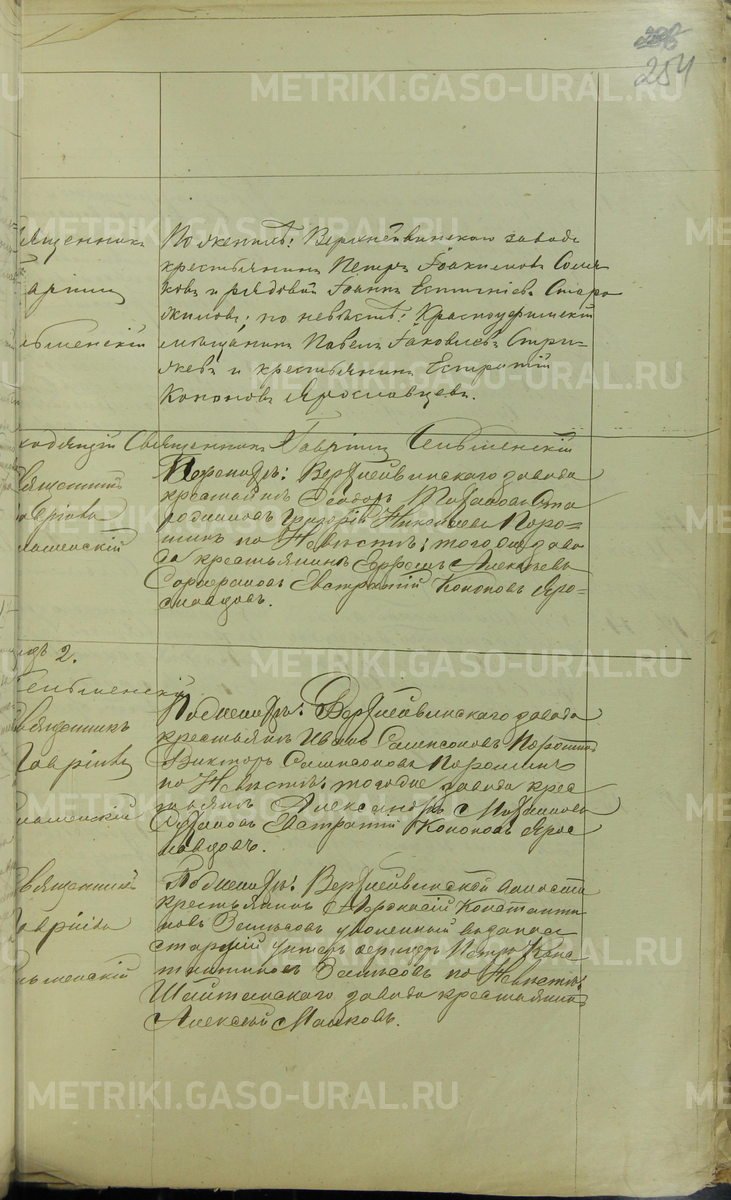 254
METRIKI.GASO-URAL.RU
Священникъ
Гавріилъ
Сельменскій
По женихѣ: Верхнейвинскаго завода
крестьянинъ Петръ Іоакимовъ
ковъ и рядовой Іоаннъ
жиловъ; по невѣстѣ: Красноуфимскій
мѣщанинъ Павелъ Іаковлевъ Стри-
жевъ и крестьянинъ Естратій
Кононовъ Ярославцевъ.
Священникъ Гавріилъ Сельменскій
Священникъ
Гавріилъ
По женихѣ: Верхнейвинскаго завода
крестьянинъ Ѳеодоръ
Григорій Николаевъ Поро-
шинъ по Невѣстѣ: того же заво-
да крестьянинъ Ефремъ Алексѣевъ
Евстратій Кононовъ Яро-
славцовъ.
2.
Сельменскій
Священникъ
Гавріилъ
По женихѣ: Верхнейвинскаго завода
крестьянинъ Иванъ Сампсоновъ Порошинъ
Викторъ Сампсоновъ Порошинъ
по Невѣстѣ: того же завода крес
тьянинъ Александръ
Евстратій Кононовъ Ярос
лавцовъ.
Священникъ
Гавріилъ
По женихѣ: Верхнейвинской волости
крестьянинъ Аѳанасій Константи-
новъ уволенный въ запасъ
старшій унтеръ офицеръ Петръ Конс
тантиновъ по Невѣстѣ:
Шайтанскаго завода крестьянинъ
Алексѣй Малковъ.